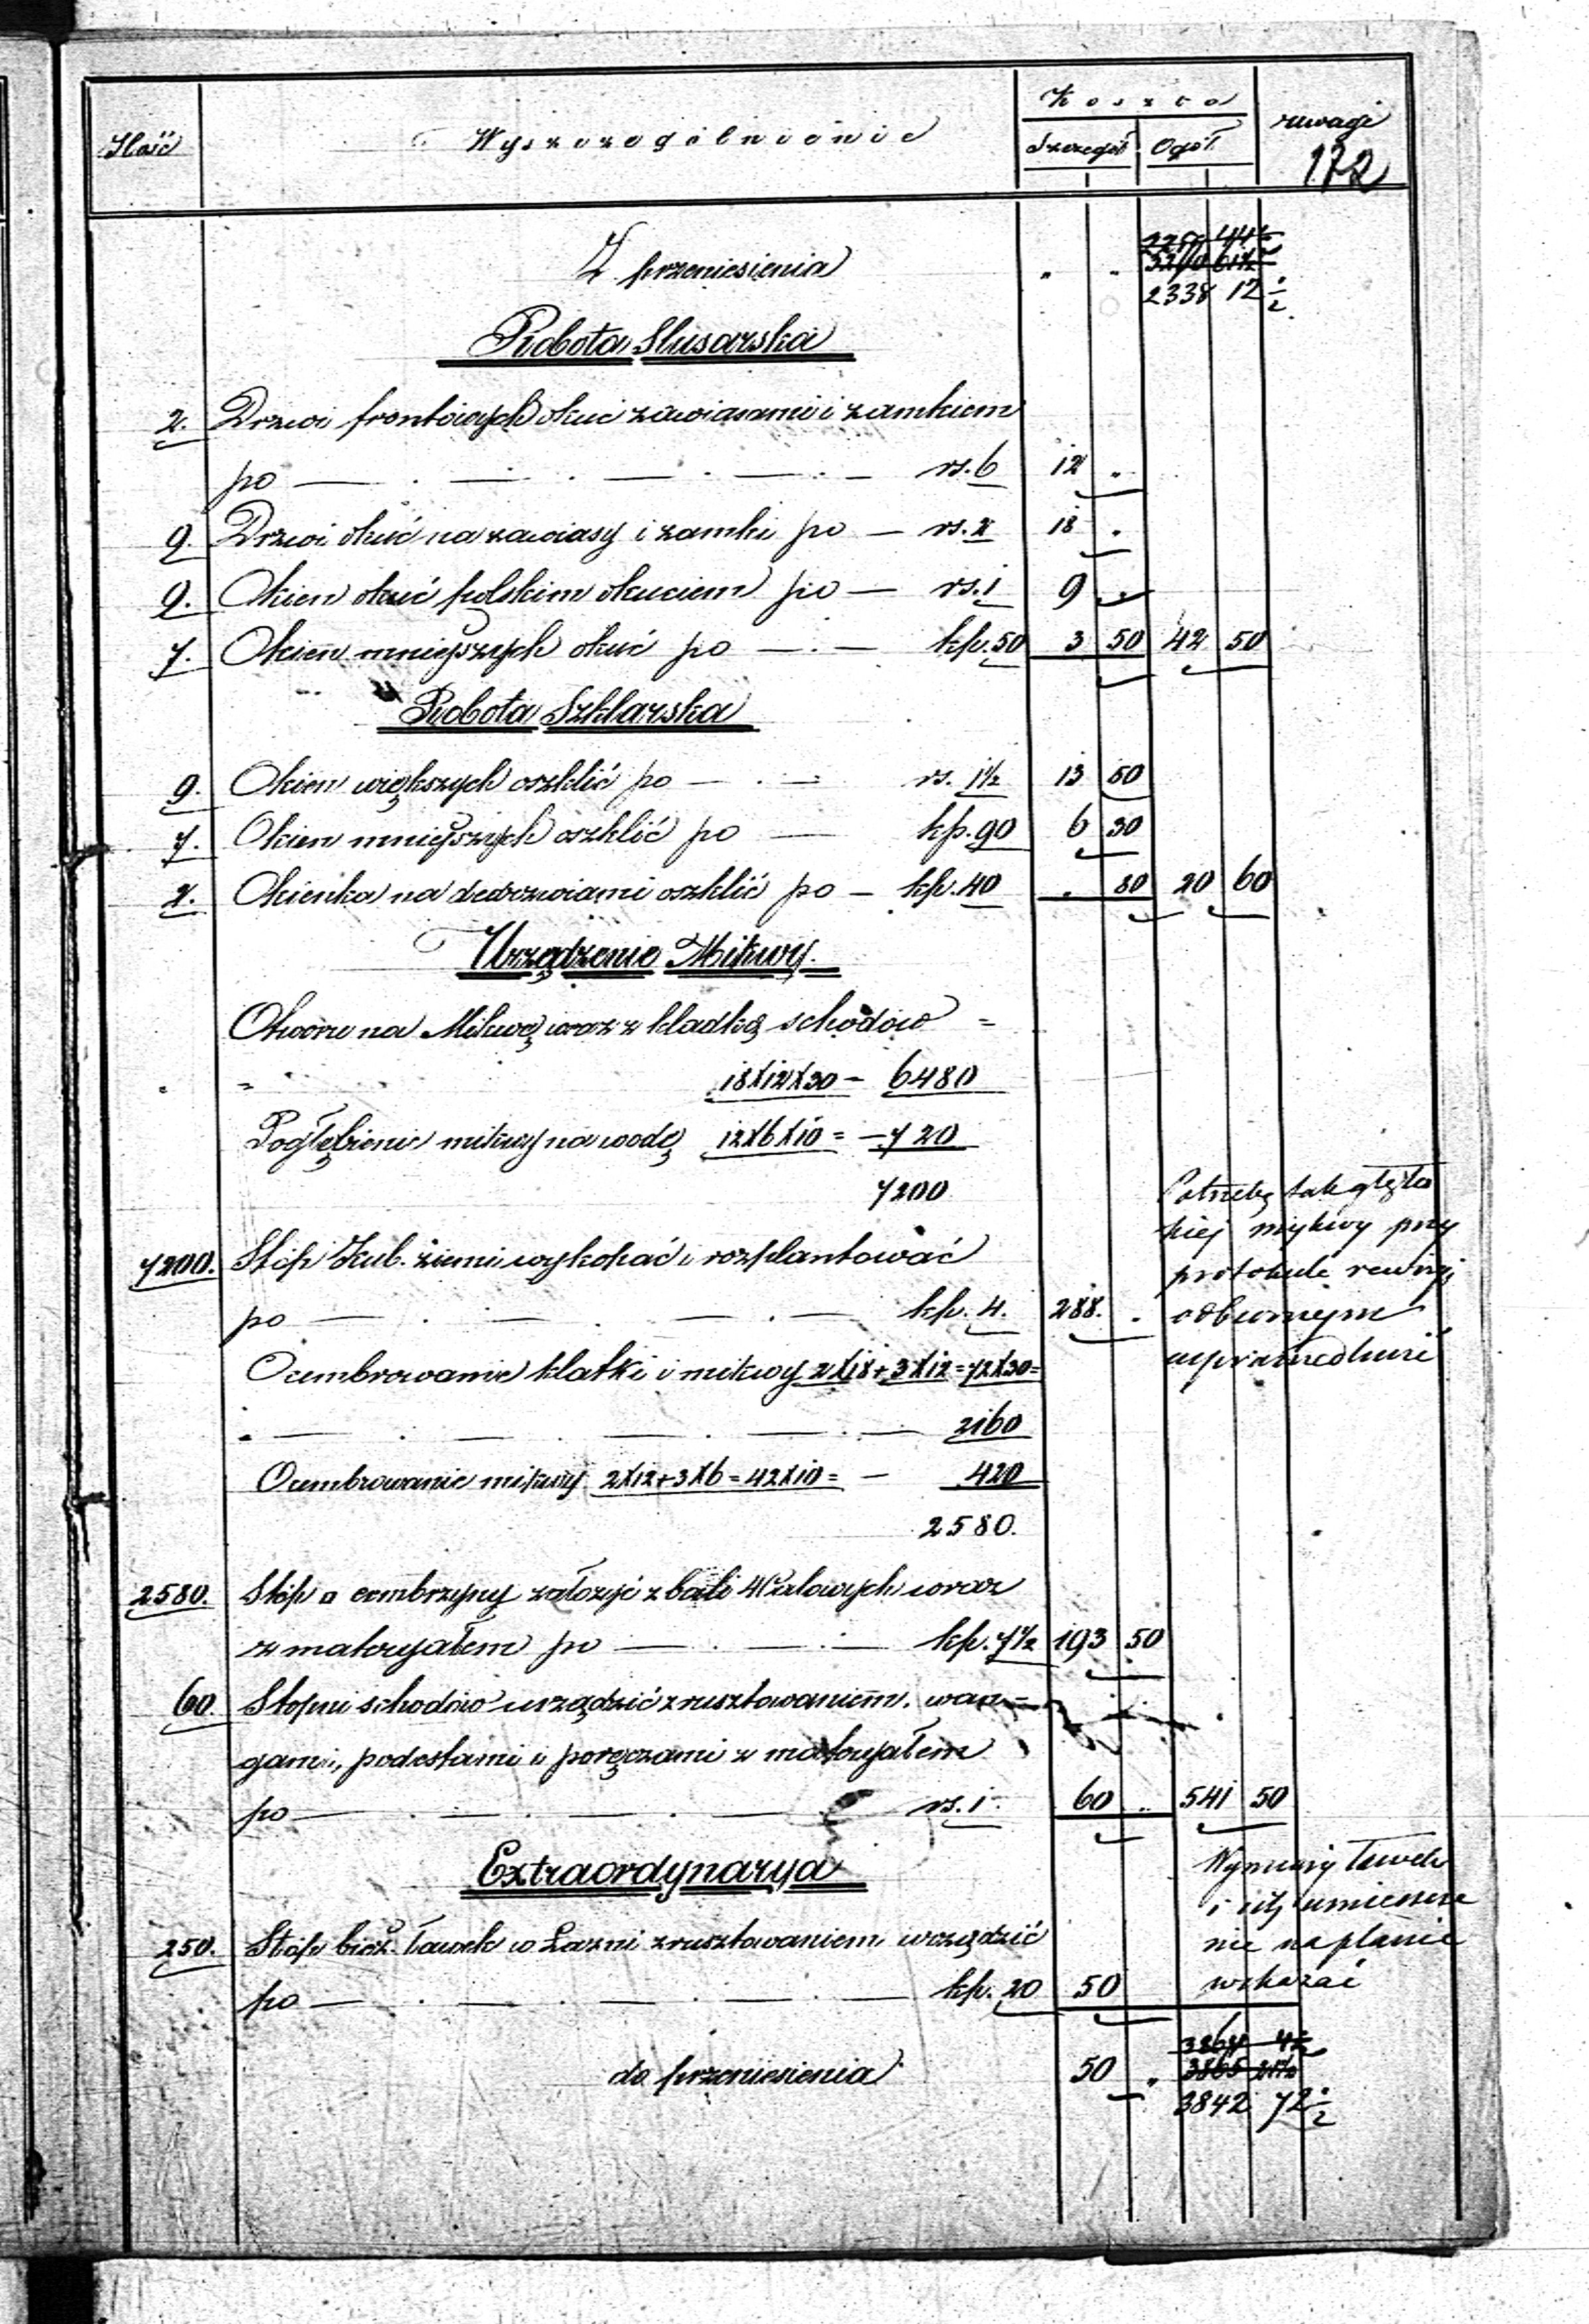 Ilość Wyszczególnienie Koszta uwagi
Szczegół Ogół 172
Z przeniesienia " " 2338 12 1/2
Robota Slusarska
2. Drzwi frontowych okuć zawiasami i zamkiem
po — . — . — . — rs. 6 12 "
9. Drzwi okuć na zawiasy i zamki po — rs. 2 18 "
9. Okien okuć polskim okuciem po — rs. 1 9 "
7. Okien mniejszych okuć po — . — kp. 50 3 50 42 50
Robota Szklarska
9. Okien większych oszklić po — . — rs. 1 1/2 13 50
7. Okien mniejszych oszklić po — kp. 90 6 30
2. Okienka na dedrzwiami oszklić po — kp. 40 " 80 20 60
Urządzenie Mitwy.
Otworu na Mikwę wraz z kladką schodów =
" = 18X12X30 — 6480
Pogłębienie mikwy na wodę 12X6X10 = — 720
7200
7200. Stóp Kub. ziemi wykopać i rozplantować
po — . — . — . — kp. 4. 288. "
Potrzebę tak głębo
kiej mykwy przy
protokule rewizyi
odbiorczym
usprawiedliwić
Ocembrowanie klatki i mikwy 2X18+3X12=72X30=
" — . — . — . — 2160
Ocembrowanie mikwy 2X12+3X6=42X10= — 420
2580.
2580. Stóp □ cembrzyny założyć z bali 4 Calowych wraz
z materyałem po — . — . — kp. 7 1/2 193 50
60. Stopni schodów urządzić z rusztowaniem, wan=
gami, podestami i poręczami z materyałem
po — . — . — . — rs. 1. 60 " 541 50
Extraordynarya
250. Stóp bież. ławek w Łazni z rusztowaniem urządzić
po — . — . — . — kp. 20 50
Wymiary ławek
i ich umieszcze
nie na planie
wskazać
do przeniesienia 50 " 3842 72 1/2